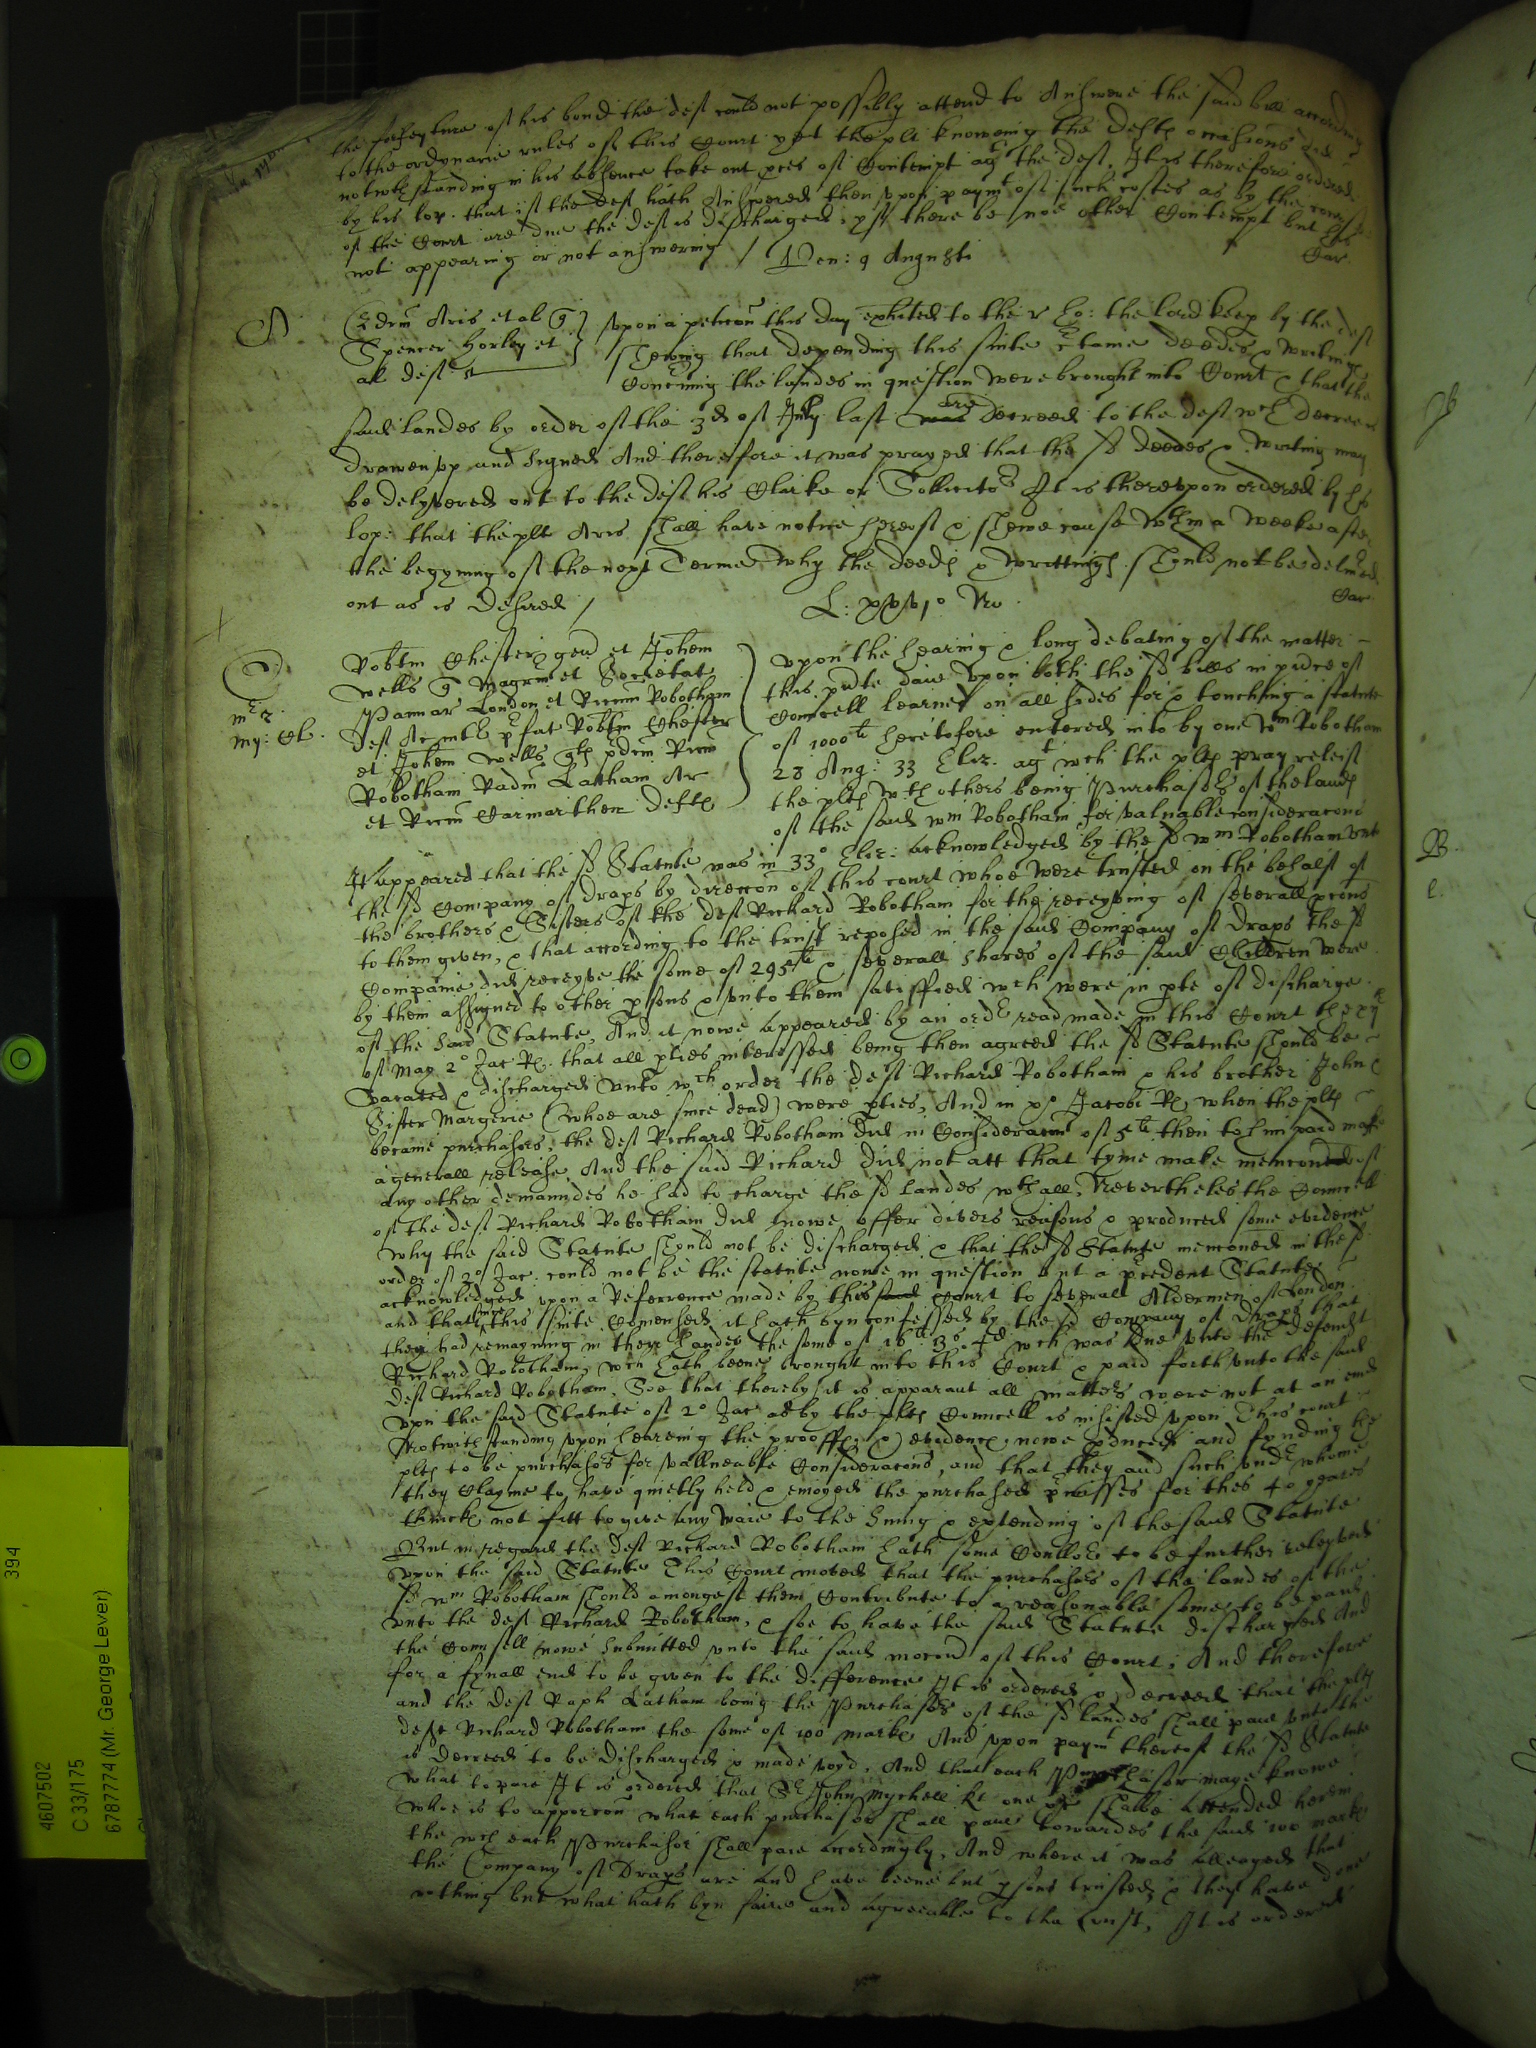 the forfeyture of his bond the deft could not possibly attend to Answere the said bill according
to the ordynarie rules of this Court yet the plt knoweing the Defts occasions did
notwthstanding in his absence take out pces of Contempt agt the deft, It is therefore ordered
by his lop. that if the deft hath Answered then upon paymt of such costes as by the course
of the Court are due the deft is discharged, yf there be noe other Contempt but his
not appearing or not answering / Ven: 9 Augusti
Car.
Edrm Aris et al q
Spencer Horley et
al deft
Upon a peticon this day exhited to the r ho: the lord keep by the deft
shewing that depending this suite ctaine deedes & writings
Concning the landes in question were brought into Court & that the
said landes by order of the 3d of July last was are decreed to the deft wch decree is
drawen up and signed And therefore it was prayed that the sd deedes & writing may
be delyvered out to the deft his Clarke or Sollicitor It is thereupon ordered by his
lop: that the plt Aris shall have notice hereof & shewe cause wthin a weeke after
the begyning of the next Terme why the deeds & writtings should not be delivred
out as is desired /
Car.
mr
my:
Robtm Chester gen et Johem
Wells q Magrm et Societat
Pannar London et Ricum Robotham
deft
et Johem Wells qts pdcm Ricm
Robotham Radm Latham Ar
et Ricm Carmarthen Defts
Upon the hearing & long debating of the matter
this pnte daie upon both the sd bills in pnce of
Councell learned on all sides for & touching a statute
of 1000li heretofore entered into by one Wm Robotham
28 Aug: 33 Eliz. agt wch the plts pray releif
the plts wth others being Purchasers of the lands
of the said Wm Robotham for valuable consideracons
It appeared that the sd Statute was in 33o Eliz: acknowledged by the sd Wm Robotham unto
the sd Company of Draps by direccon of this court whoe were trusted on the behalf of
the brothers & Sisters of the deft Richard Robotham for the receyving of severall porcons
to them given, & that according to the trust reposed in the said Company of Draps the sd
Companie did receyve the some of 295li & severall shares of the said Children were
by them assigned to other psons & unto them satisfied wch were in pte of discharge
of the said Statute, And it nowe appeared by an ordr read made in this Court
of May 2o Jac R. that all pties interessed being then agreed the sd Statute should be
vacated & discharged unto wch order the deft Richard Robotham & his brother John &
Sister Margerie (whoe are since dead) were pties, And in Jacobi R when the plts
became purchasers, the deft Richard Robotham did in Consideracon of 5li then to him paid make
a generall release, And the said Richard did not att that tyme make mencon of
any other demaundes he had to charge the sd landes wthall, Nevertheles the Councell
of the deft Richard Robotham did nowe offer divers reasons & produced some evidence
why the said Statute should not be discharged & that the sd Statute menconed in the sd
order of 2o Jac. could not be the statute nowe in question but a precedent Statute
acknowledged upon a Referrence made by this said Court to severall Aldermen of London
and that since this suite Comenced it hath byn confessed by the sd Company of Draps that
they had remayning in their handes the some of 16li 13s 4d wch was due unto the defendt
Richard Robotham, wch hath beene brought into this Court & paid forth unto the said
deft Richard Robotham, Soe that thereby it is apparant all matters were not at an end
upon the said Statute of 2o Jac as by the plts Councell is insisted upon This court
Notwithstanding upon heareing the prooffes & evidence nowe pduced and fynding the
plts to be purchasers for vallueable Consideracons, and that they and such undr whome
they Clayme to have quietly held & enioyed the purchased pmisses for thes 40 yeares
thinck not fitt to give any waie to the suing & extending of the said Statute
But in regard the deft Richard Robotham hath some Coullor to be further releyved
upon the said Statute This Court moved that the purchasers of the landes of the
sd Wm Robotham should amongest them Contribute to a reasonable some to be paid
unto the deft Richard Robotham, & soe to have the said Statute discharged And
the Counsell nowe submitted unto the said mocon of this Court, And therefore
for a fynall end to be given to the difference It is ordered & decreed that the plts
and the deft Raph Latham being the Purchasers of the sd landes shall paie unto the
deft Richard Robotham the some of 100 marks And upon paymt thereof the sd Statute
is decreed to be discharged & made voyd, And that each Purchasor maye knowe
what to paie It is ordered that Sr John Mychell kt one of shalbe attended herein
whoe is to apporcon what each purchasor shall paie towardes the said 100 marks
the wch each Purchasor shall paie accordingly, And where it was alleaged that
the Company of Draps are and have beene but psons trusted, & they have done
nothing but what hath byn faire and agreeable to the trust, It is ordered
4607502
C 33/175
6787774 (Mr. George Lever)
394